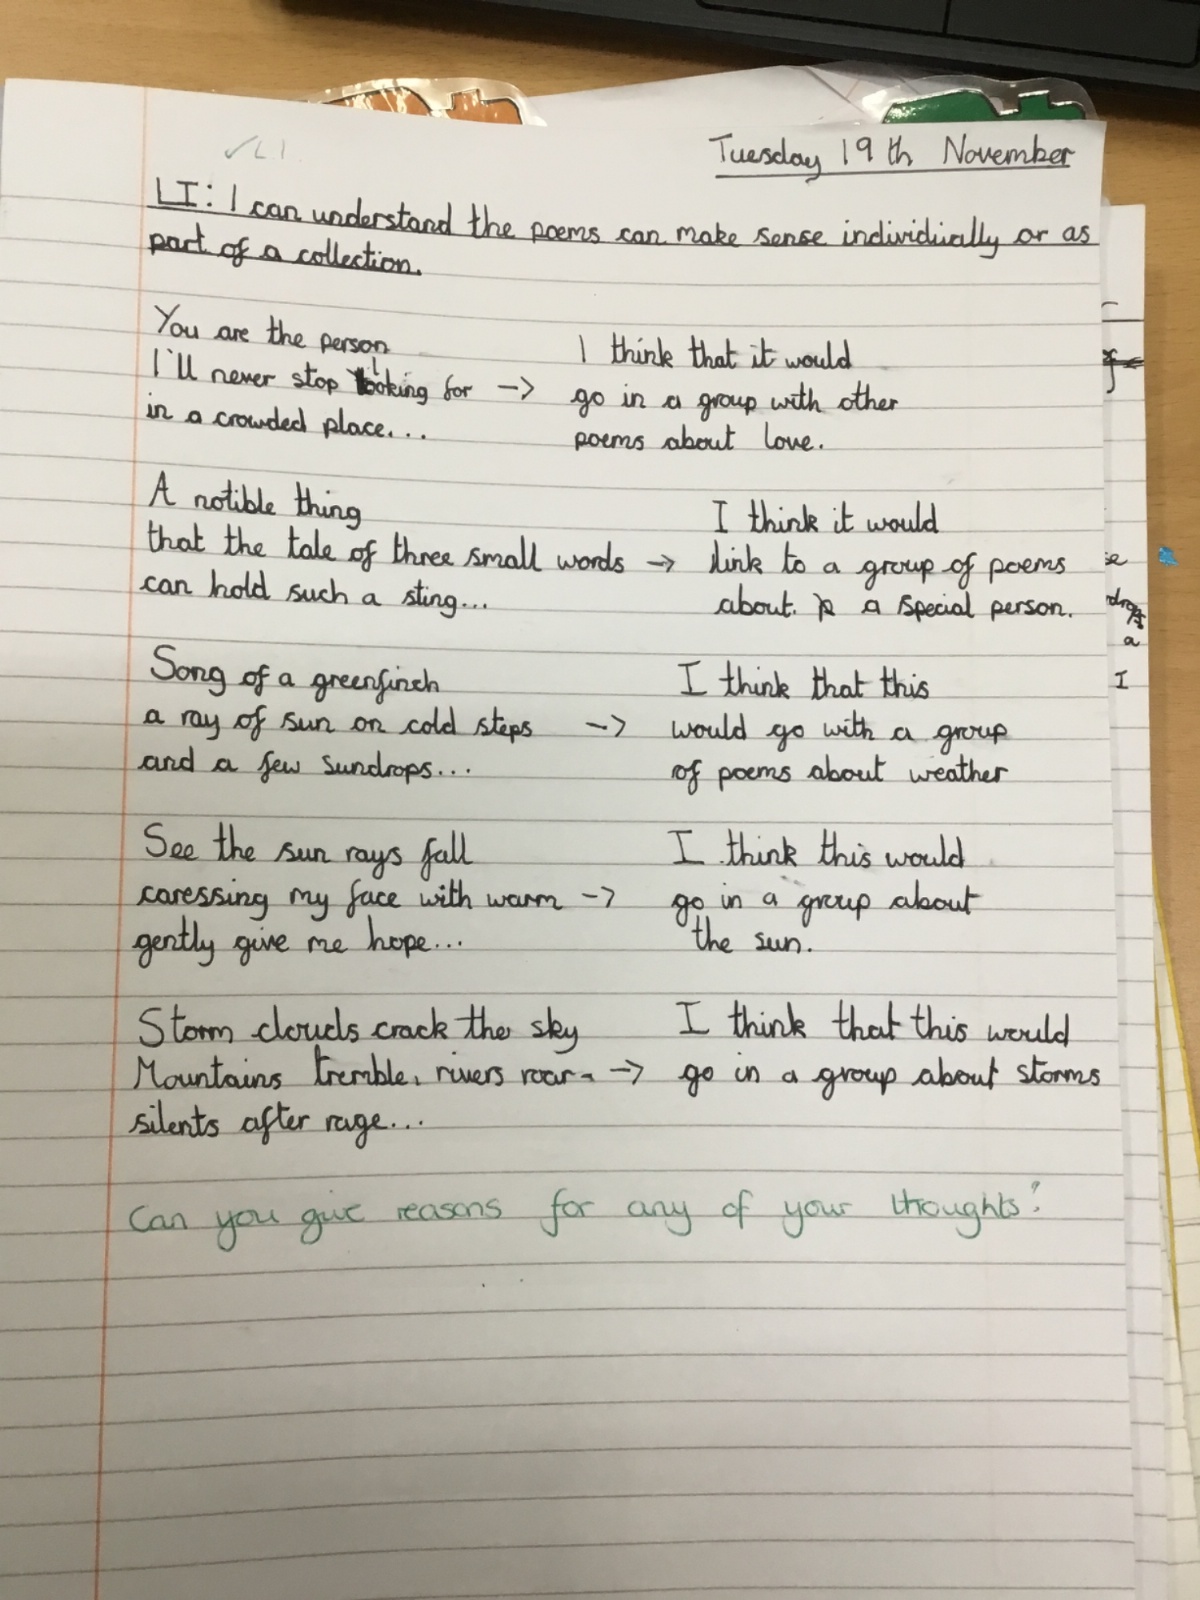 ✓LI
Tuesday 19th November
LI: I can understand the poems can make sense individiually or as
part of a collection.
You are the person
I'll never stop looking for ->
in a crowded place...
I think that it would
go in a group with other
poems about love.
A notible thing
that the tale of three small words ->
can hold such a sting...
I think it would
link to a group of poems
about. a special person.
Song of a greenfinch
a ray of sun on cold steps ->
and a few sundrops...
I think that this
would go with a group
of poems about weather
See the sun rays fall
caressing my face with warm ->
gently give me hope...
I think this would
go in a group about
the sun.
Storm clouds crack the sky
Mountains tremble, rivers roar ->
silents after rage...
I think that this would
go in a group about storms
Can you give reasons for any of your thoughts?
se
a
I